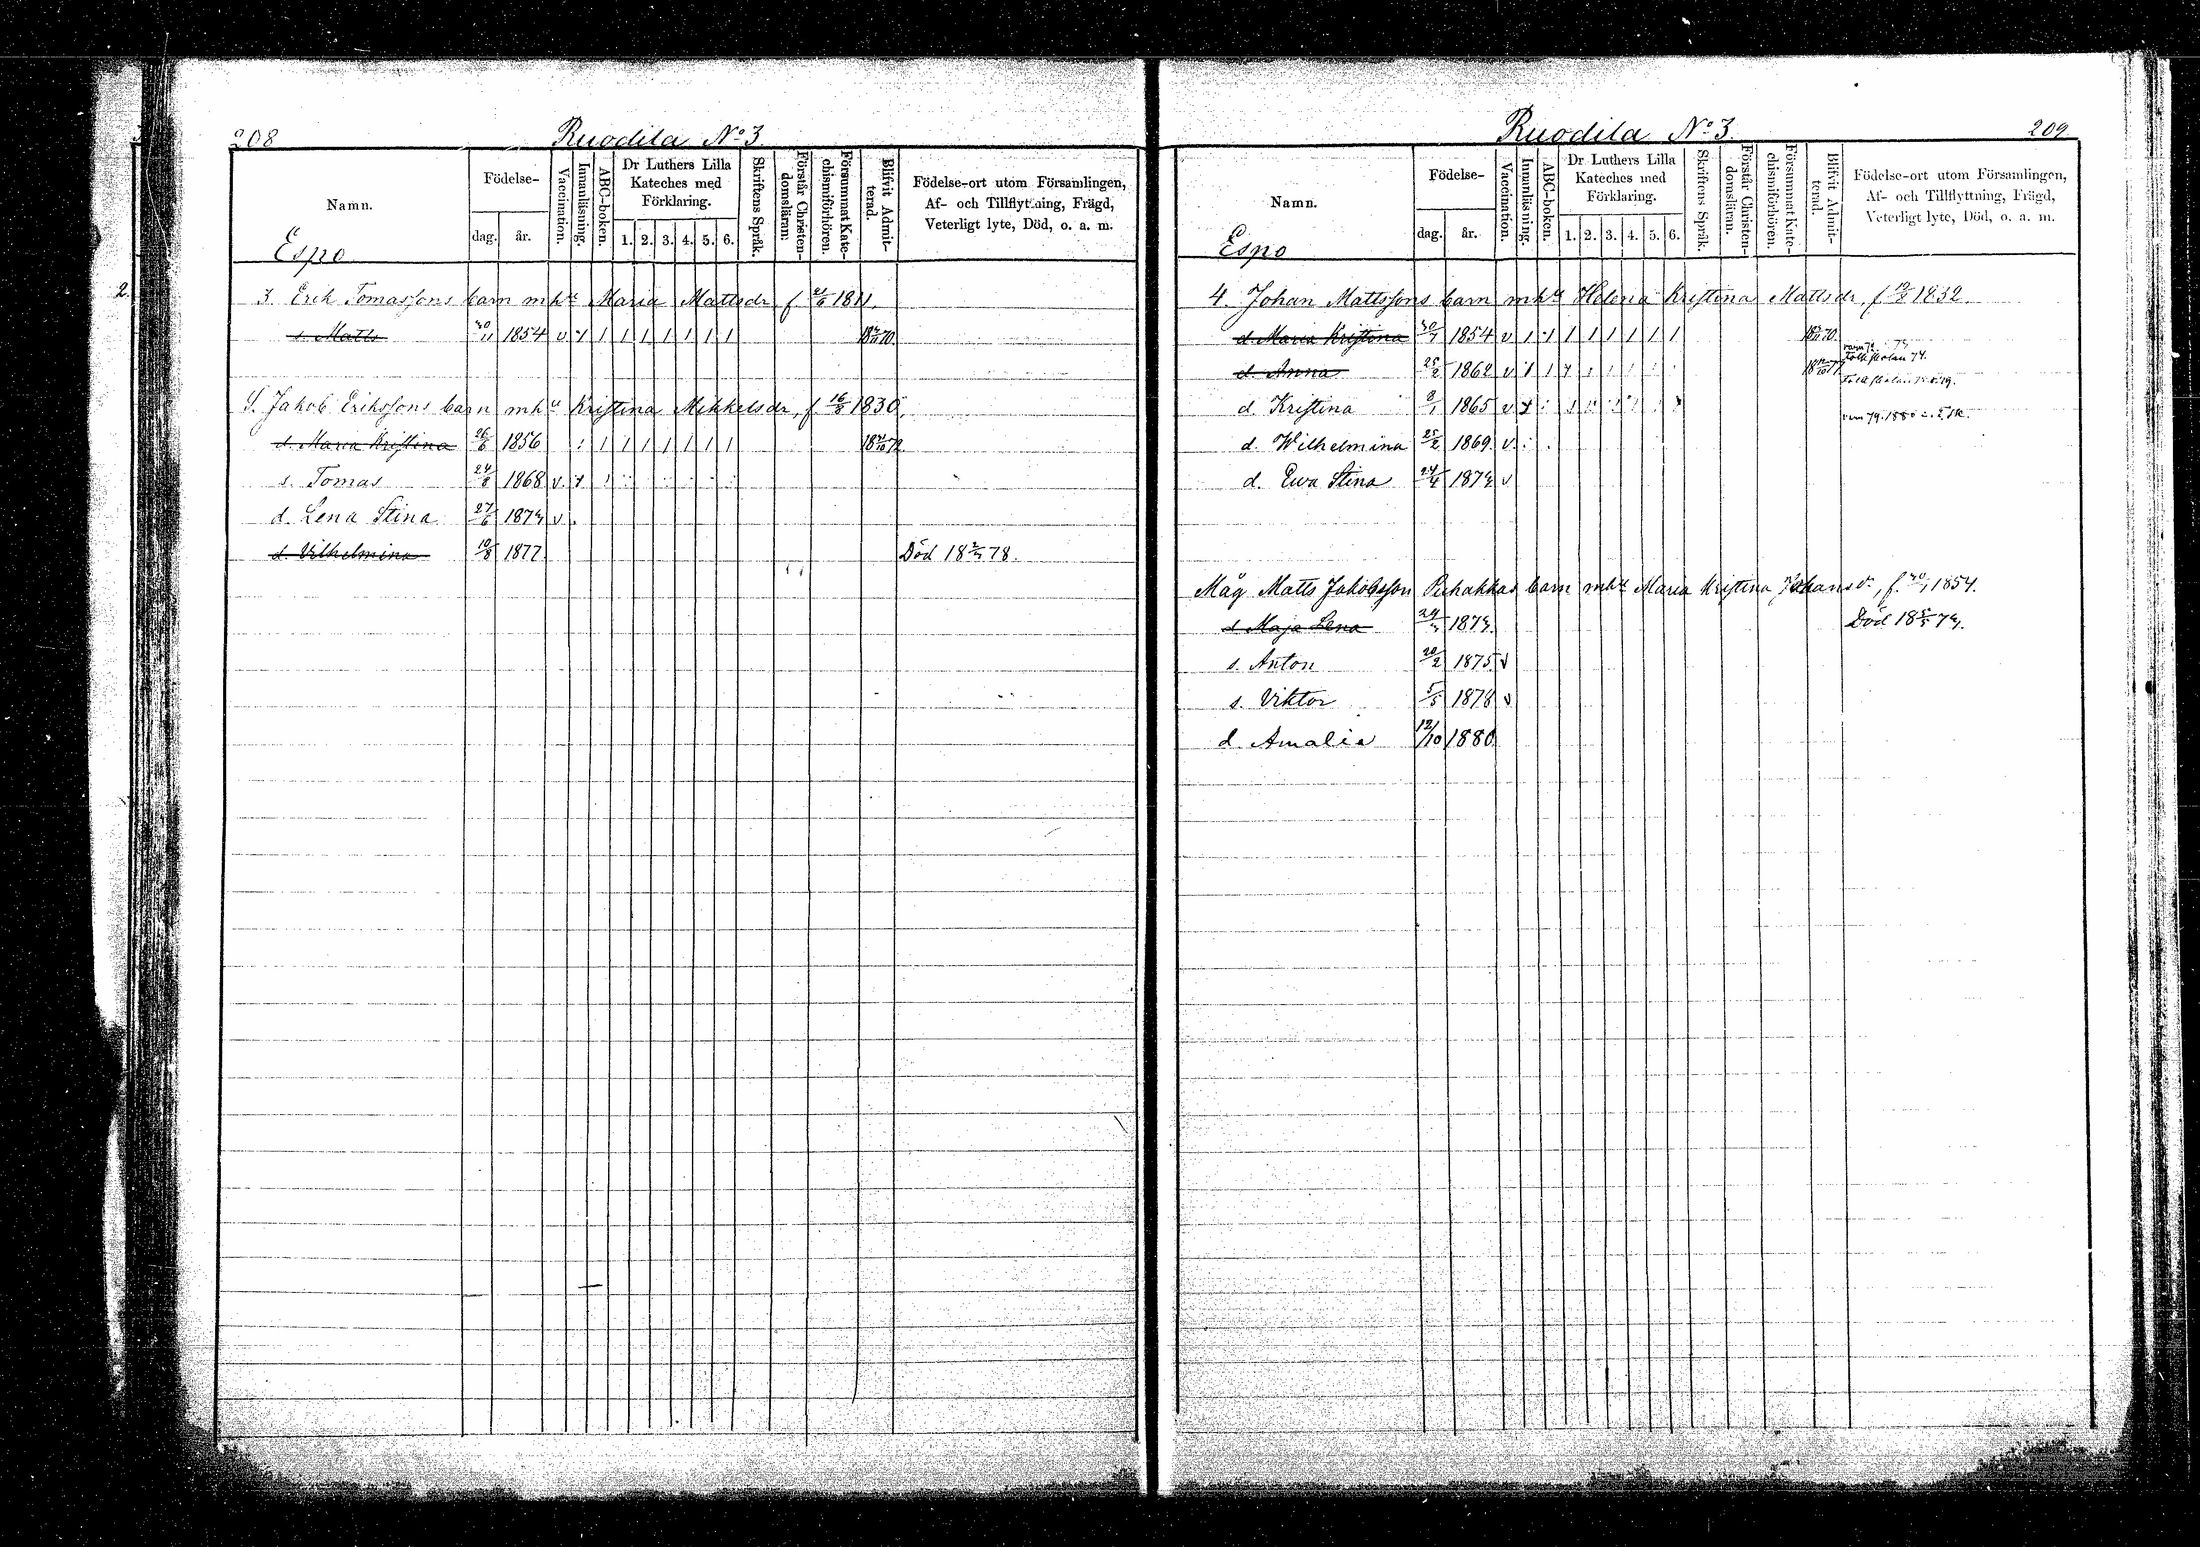 208
Ruodila No 3.
Namn.
Födelse-
dag.
år.
Vaccination.
Innanläsning.
ABC-boken.
Dr Luthers Lilla
Kateches med
Förklaring.
1. 2. 3. 4. 5. 6.
Skriftens Språk.
Förstår Christen-
domsläran.
Försummat Kate-
chismiförhören.
Blifvit Admit-
terad.
Födelse-ort utom Församlingen,
Af- och Tillflyttning, Frägd,
Veterligt lyte, Död, o. a. m.
Espo
3. Erik Tomassons barn mhu Maria Mattsdr f 21/6 1811.
s. Matts 30/11 1854 v
S. Jakob Erikssons barn mhu Kristina Mikkelsdr, f 16/8 1830.
d. Maria Kristina 26/6 1856
s. Tomas 24/8 1868 v.
d. Lena Stina 27/6 1873 v
d. Vilhelmina 10/8 1877 Död 18 2/3 78.
209
Ruodila No 3.
Namn.
Födelse-
dag.
år.
Vaccination.
Innanläsning.
ABC-boken.
Dr Luthers Lilla
Kateches med
Förklaring.
1. 2. 3. 4. 5. 6.
Skriftens Språk.
Förstår Christen-
domsläran.
Försummat Kate-
chismiförhören.
Blifvit Admit-
terad.
Födelse-ort utom Församlingen,
Af- och Tillflyttning, Frägd,
Veterligt lyte, Död, o. a. m.
Espo
4. Johan Mattssons barn mhu Helena Kristina Mattsdr, f 1832.
d. Maria Kristina 1854 v
Folkskolan 74.
d. Anna 25/2 1862 v
d. Kristina 8/1 1865 v
d. Wilhelmina 25/2 1869 v
d. Ewa Stina 24/4 1873 v
Måg Matts Jakobsson barn mhu Maria Kristina Johansdr, f. 1854.
d. Maja Lena 1873. Död 18 73.
s. Anton 20/2 1875 v
s. Viktor 5/5 1878 v
d. Amalia 12/10 1880